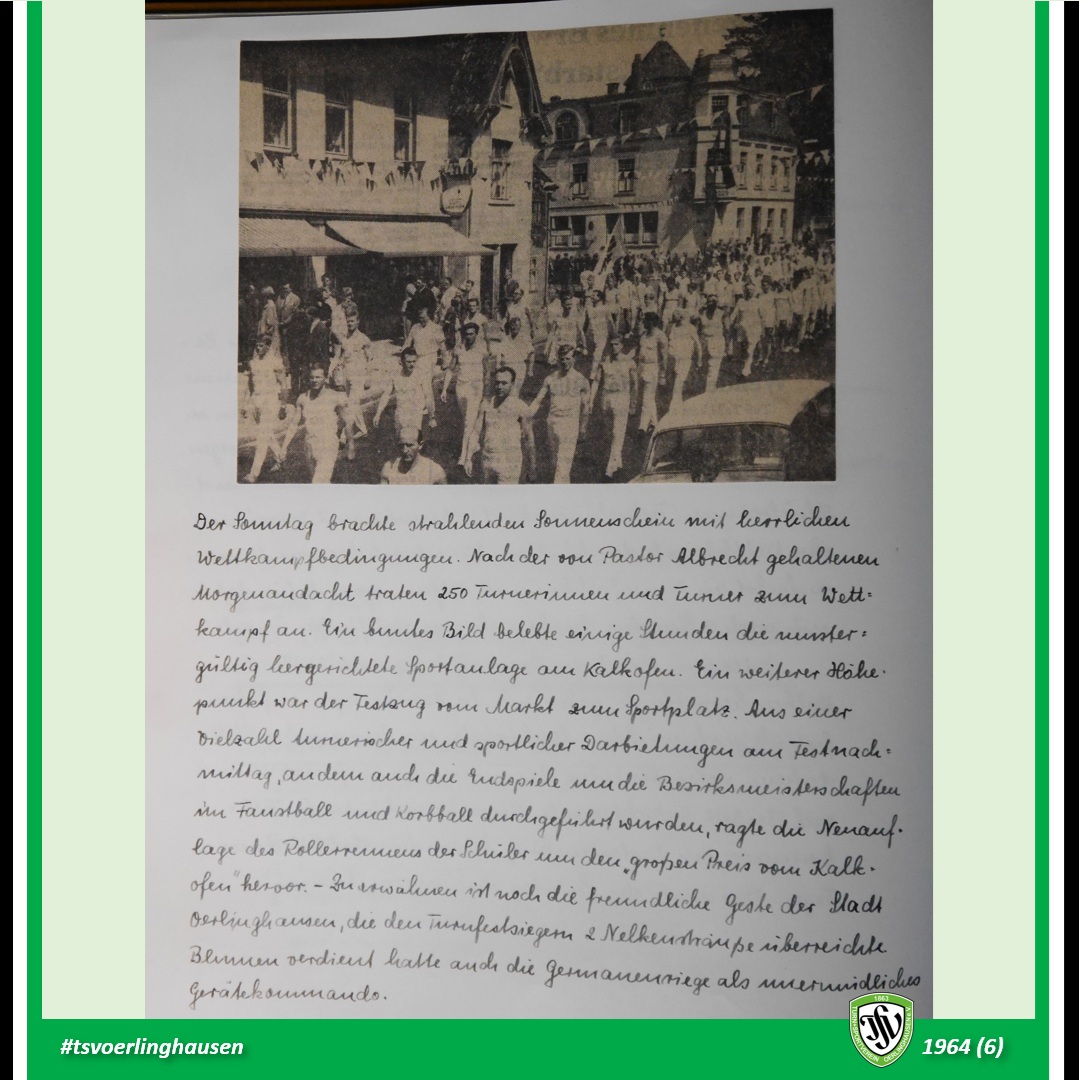 Der Sonntag brachte strahlenden Sonnenschein mit herrlichen
Wettkampfbedingungen. Nach der von Pastor Albrecht gehaltenen
Morgenandacht traten 250 Turnerinnen und Turner zum Wett=
kampf an. Ein buntes Bild belebte einige Stunden die muster=
gültig hergerichtete Sportanlage am Kalkofen. Ein weiterer Höhe-
punkt war der Festzug vom Markt zum Sportplatz. Aus einer
Vielzahl turnerischer und sportlicher Darbietungen am Festnach=
mittag, an dem auch die Endspiele um die Bezirksmeisterschaften
im Faustball und Korbball durchgeführt wurden, ragte die Neuauf-
lage des Rollerrennens der Schüler um den „großen Preis vom Kalk-
ofen" hervor. - Zu erwähnen ist noch die freundliche Geste der Stadt
Oerlinghausen, die den Turnfestsiegern 2 Nelkensträuße überreichte
Blumen verdient hatte auch die Germanenriege als unermüdliches
Gerätekommando.
1863
TSV
TURN-U-SPORTVEREIN OERLINGHAUSEN
#tsvoerlinghausen
1964 (6)